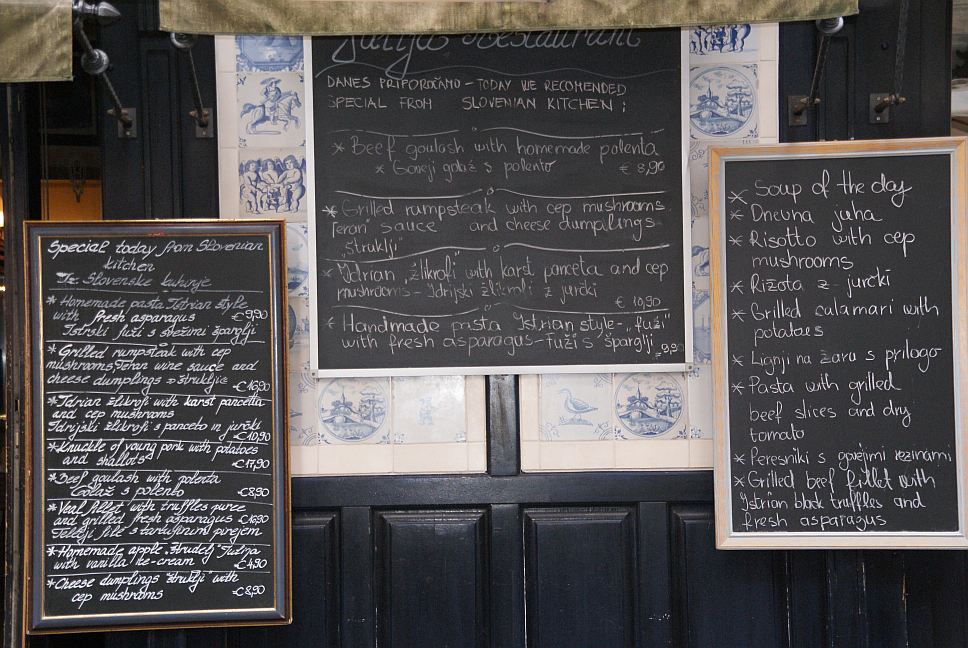 Special today from Slovenian
kitchen
Iz Slovenske kuhinje
* Homemade pasta Istrian style
with fresh asparagus €9,90
Istrski fuži s svežimi šparglji
* Grilled rumpsteak with cep
mushrooms, Teran wine sauce and
cheese dumplings "štruklji" €16,90
* Idrian žlikrofi with karst pancetta
and cep mushrooms
Idrijski žlikrofi s panceto in jurčki
€10,90
* Knuckle of young pork with potatoes
and shallots €17,90
* Beef goulash with polenta
Golaž s polento €8,90
* Veal fillet with truffles puree
and grilled fresh asparagus €16,90
Telečji file s tartufinim pirejem
* Homemade apple "štrudelj" Julija
with vanilla ice-cream €4,90
* Cheese dumplings "štruklji" with
cep mushrooms €8,90
Julija Restaurant
DANES PRIPOROČAMO - TODAY WE RECOMENDED
SPECIAL FROM SLOVENIAN KITCHEN :
* Beef goulash with homemade polenta
* Goveji golaž s polento € 8,90
* Grilled rumpsteak with cep mushrooms
Teran sauce and cheese dumplings
"Štruklji"
* Idrian "žlikrofi" with karst panceta and cep
mushrooms - Idrijski žlikrofi z jurčki
€ 10,90
* Handmade pasta Istrian style - "fuži"
with fresh asparagus - fuži s šparglji 9,90
* Soup of the day
* Dnevna juha
* Risotto with cep
mushrooms
* Rižota z jurčki
* Grilled calamari with
potatoes
* Lignji na žaru s prilogo
* Pasta with grilled
beef slices and dry
tomato
* Peresniki s govejimi rezinami
* Grilled beef fillet with
Istrian black truffles and
fresh asparagus